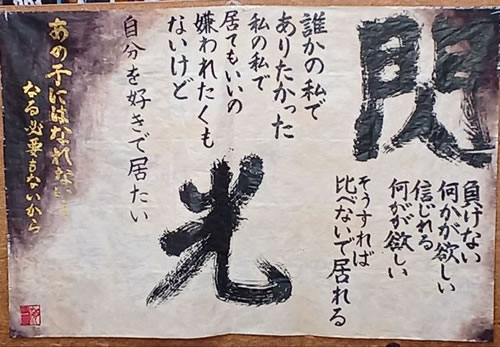 閃光
負けない
何かが欲しい
信じれる
何かが欲しい
そうすれば
比べないで居れる
誰かの私で
ありたかった
私の私で
居てもいいの
嫌われたくも
ないけど
自分を好きで居たい
あの子にはなれないし
なる必要もないから